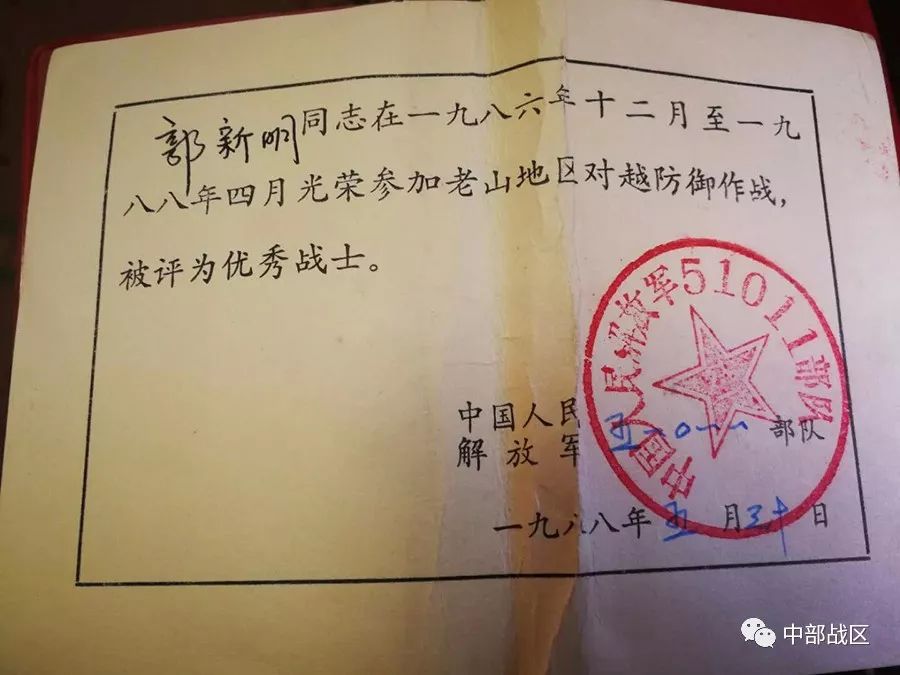 郭新明同志在一九八六年十二月至一九
八八年四月光荣参加老山地区对越防御作战，
被评为优秀战士。
中国人民解放军51011部队
中国人民
解放军五一〇一一部队
一九八八年五月三十日
中部战区